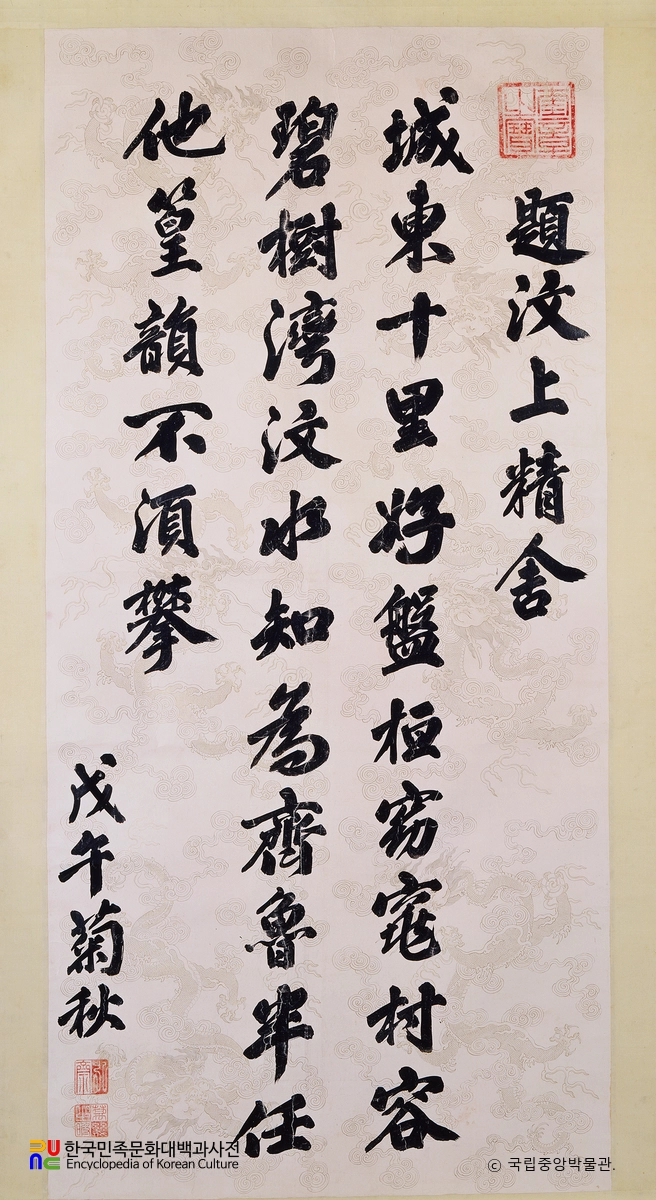 奎章之寶
題汶上精舍
城東十里好盤桓窈窕村容
碧樹灣汶水知為齊魯半任
他篁韻不須攀
戊午菊秋
弘齋
한국민족문화대백과사전
Encyclopedia of Korean Culture
© 국립중앙박물관.